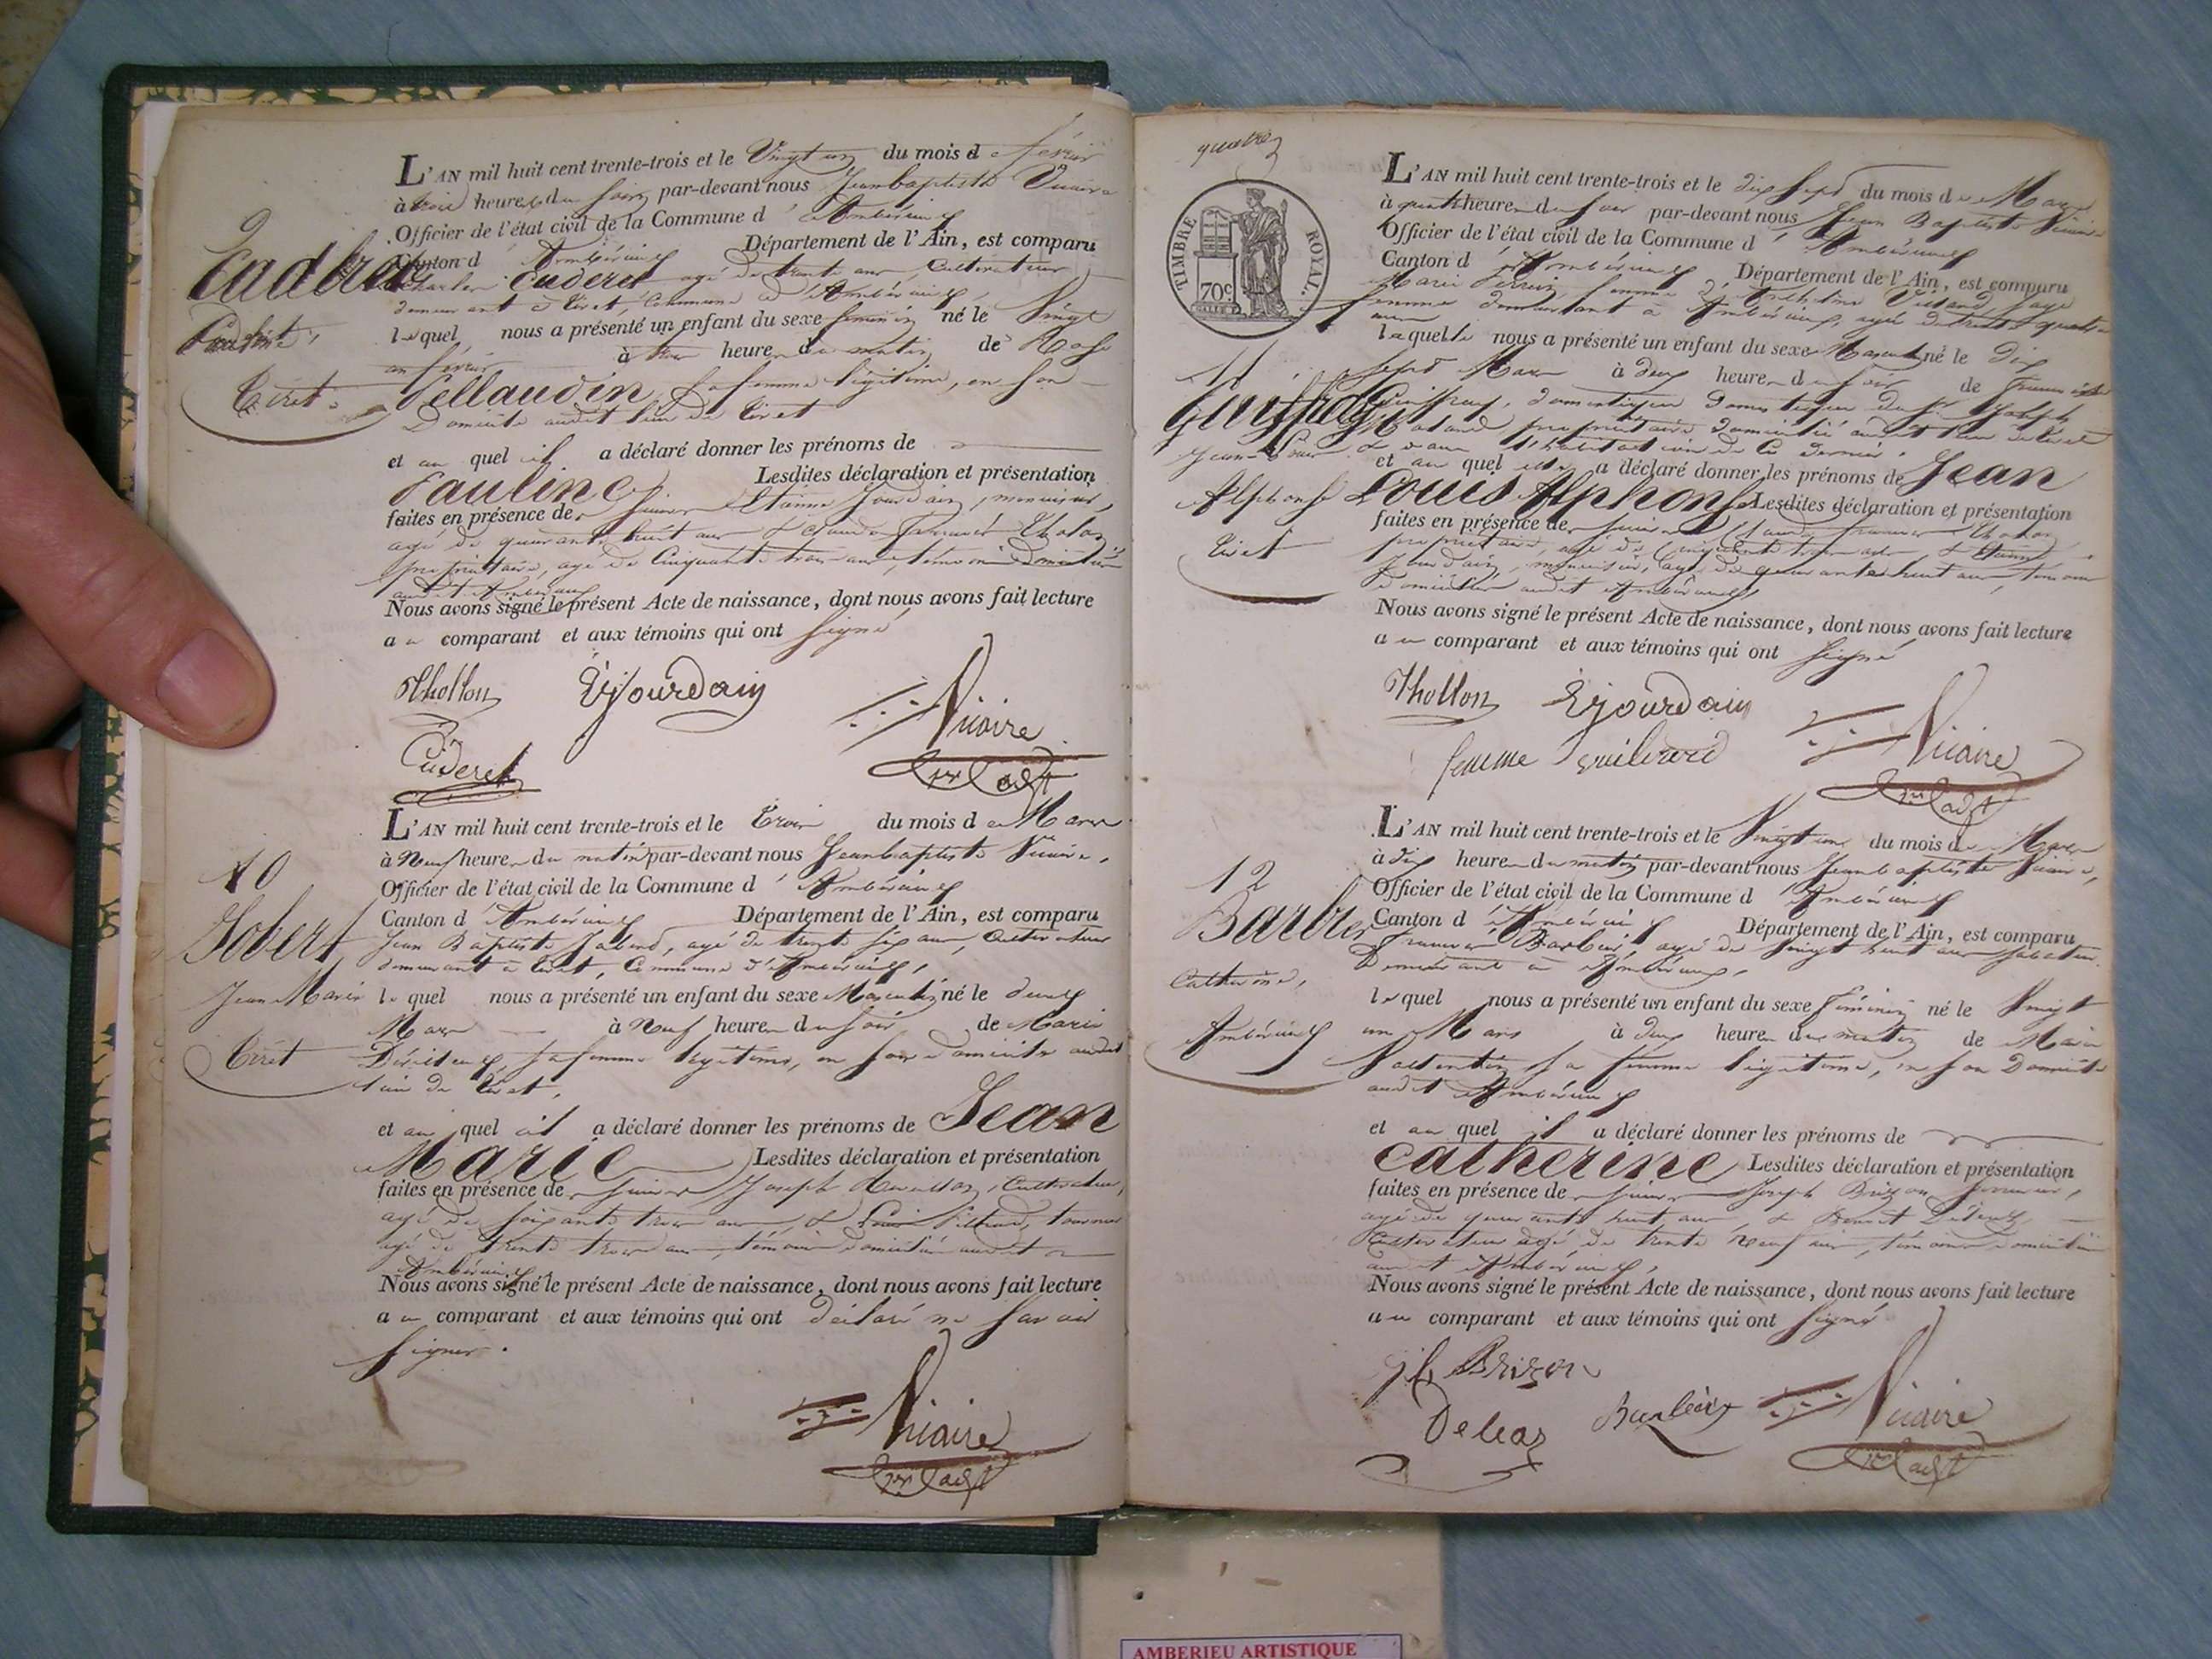 L'AN mil huit cent trente-trois et le Vingt un du mois de février
à trois heures du soir par-devant nous Jeanbaptiste Vicaire
Officier de l'état civil de la Commune d'Ambérieux
Canton d'Ambérieux Département de l'Ain, est comparu
Charles Cuderet agé de trente ans, Cultivateur
demeurant à Tiret, Commune d'Ambérieux
lequel nous a présenté un enfant du sexe féminin né le Vingt
un février à heures du matin de Rose
Pellaudin, sa femme légitime, en son
Domicile audit lieu de Tiret
et au quel il a déclaré donner les prénoms de
Pauline Lesdites déclaration et présentation
faites en présence de Etienne Jourdain, menuisier,
agé de quarante huit ans & Claude François Tholon
propriétaire, agé de Cinquante trois ans, témoins domiciliés
audit Ambérieux
Nous avons signé le présent Acte de naissance, dont nous avons fait lecture
au comparant et aux témoins qui ont signé
9
Pauline
Tiret
Thollon Ejourdain Vicaire
Cuderet adjt
L'AN mil huit cent trente-trois et le Trois du mois de Mars
à Neuf heures du matin par-devant nous Jeanbaptiste Vicaire,
Officier de l'état civil de la Commune d'Ambérieux
Canton d'Ambérieux Département de l'Ain, est comparu
Jean Baptiste agé de trente six ans, Cultivateur
demeurant à Tiret, Commune d'Ambérieux,
lequel nous a présenté un enfant du sexe Masculin né le deux
Mars à Neuf heures du soir de Marie
sa femme légitime, en son domicile audit
lieu de Tiret,
et au quel il a déclaré donner les prénoms de Jean
Marie Lesdites déclaration et présentation
faites en présence de Joseph Cultivateur,
agé de soixante trois ans, & Louis tourneur
agé de trente trois ans témoins domiciliés audit
Ambérieux
Nous avons signé le présent Acte de naissance, dont nous avons fait lecture
au comparant et aux témoins qui ont déclaré ne savoir
signer.
10
Jobert
Jean Marie
Tiret
Vicaire
adjt
quatre
TIMBRE ROYAL.
70c
L'AN mil huit cent trente-trois et le dix sept du mois de Mars
à quatre heures du soir par-devant nous Jean Baptiste Vicaire
Officier de l'état civil de la Commune d'Ambérieux
Canton d'Ambérieux Département de l'Ain, est comparu
Marie femme d' sage
femme demeurant à Ambérieux, agée de trente quatre
ans
laquelle nous a présenté un enfant du sexe Masculin né le Dix
sept Mars à deux heures du soir de
Guiffray, domestique
propriétaire domicilié audit lieu de Tiret
dans l'habitation de ce dernier.
et au quel elle a déclaré donner les prénoms de Jean
Louis Alphonse Lesdites déclaration et présentation
faites en présence de Claude François Tholon
propriétaire, agé de Cinquante trois ans & Etienne
Jourdain, menuisier, agé de quarante huit ans, témoins
domiciliés audit Ambérieux
Nous avons signé le présent Acte de naissance, dont nous avons fait lecture
au comparant et aux témoins qui ont signé
11
Guiffray
Jean Louis
Alphonse
Tiret
Thollon Ejourdain Vicaire
femme adjt
L'AN mil huit cent trente-trois et le Vingt un du mois de Mars
à dix heures du matin par-devant nous Jeanbaptiste Vicaire,
Officier de l'état civil de la Commune d'Ambérieux
Canton d'Ambérieux Département de l'Ain, est comparu
François Barbier, agé de Vingt huit ans sabotier
Demeurant à Ambérieux,
lequel nous a présenté un enfant du sexe féminin né le Vingt
un Mars à deux heures du matin de Marie
sa femme légitime, en son Domicile
audit Ambérieux
et au quel il a déclaré donner les prénoms de
Catherine Lesdites déclaration et présentation
faites en présence de Joseph Brizon
agé de quarante huit ans, & Benoit
Cultivateur agé de trente Neuf ans, témoins domiciliés
audit Ambérieux,
Nous avons signé le présent Acte de naissance, dont nous avons fait lecture
au comparant et aux témoins qui ont signé
12
Barbier
Catherine,
Ambérieux
Brizon
Vicaire
adjt
AMBERIEU ARTISTIQUE